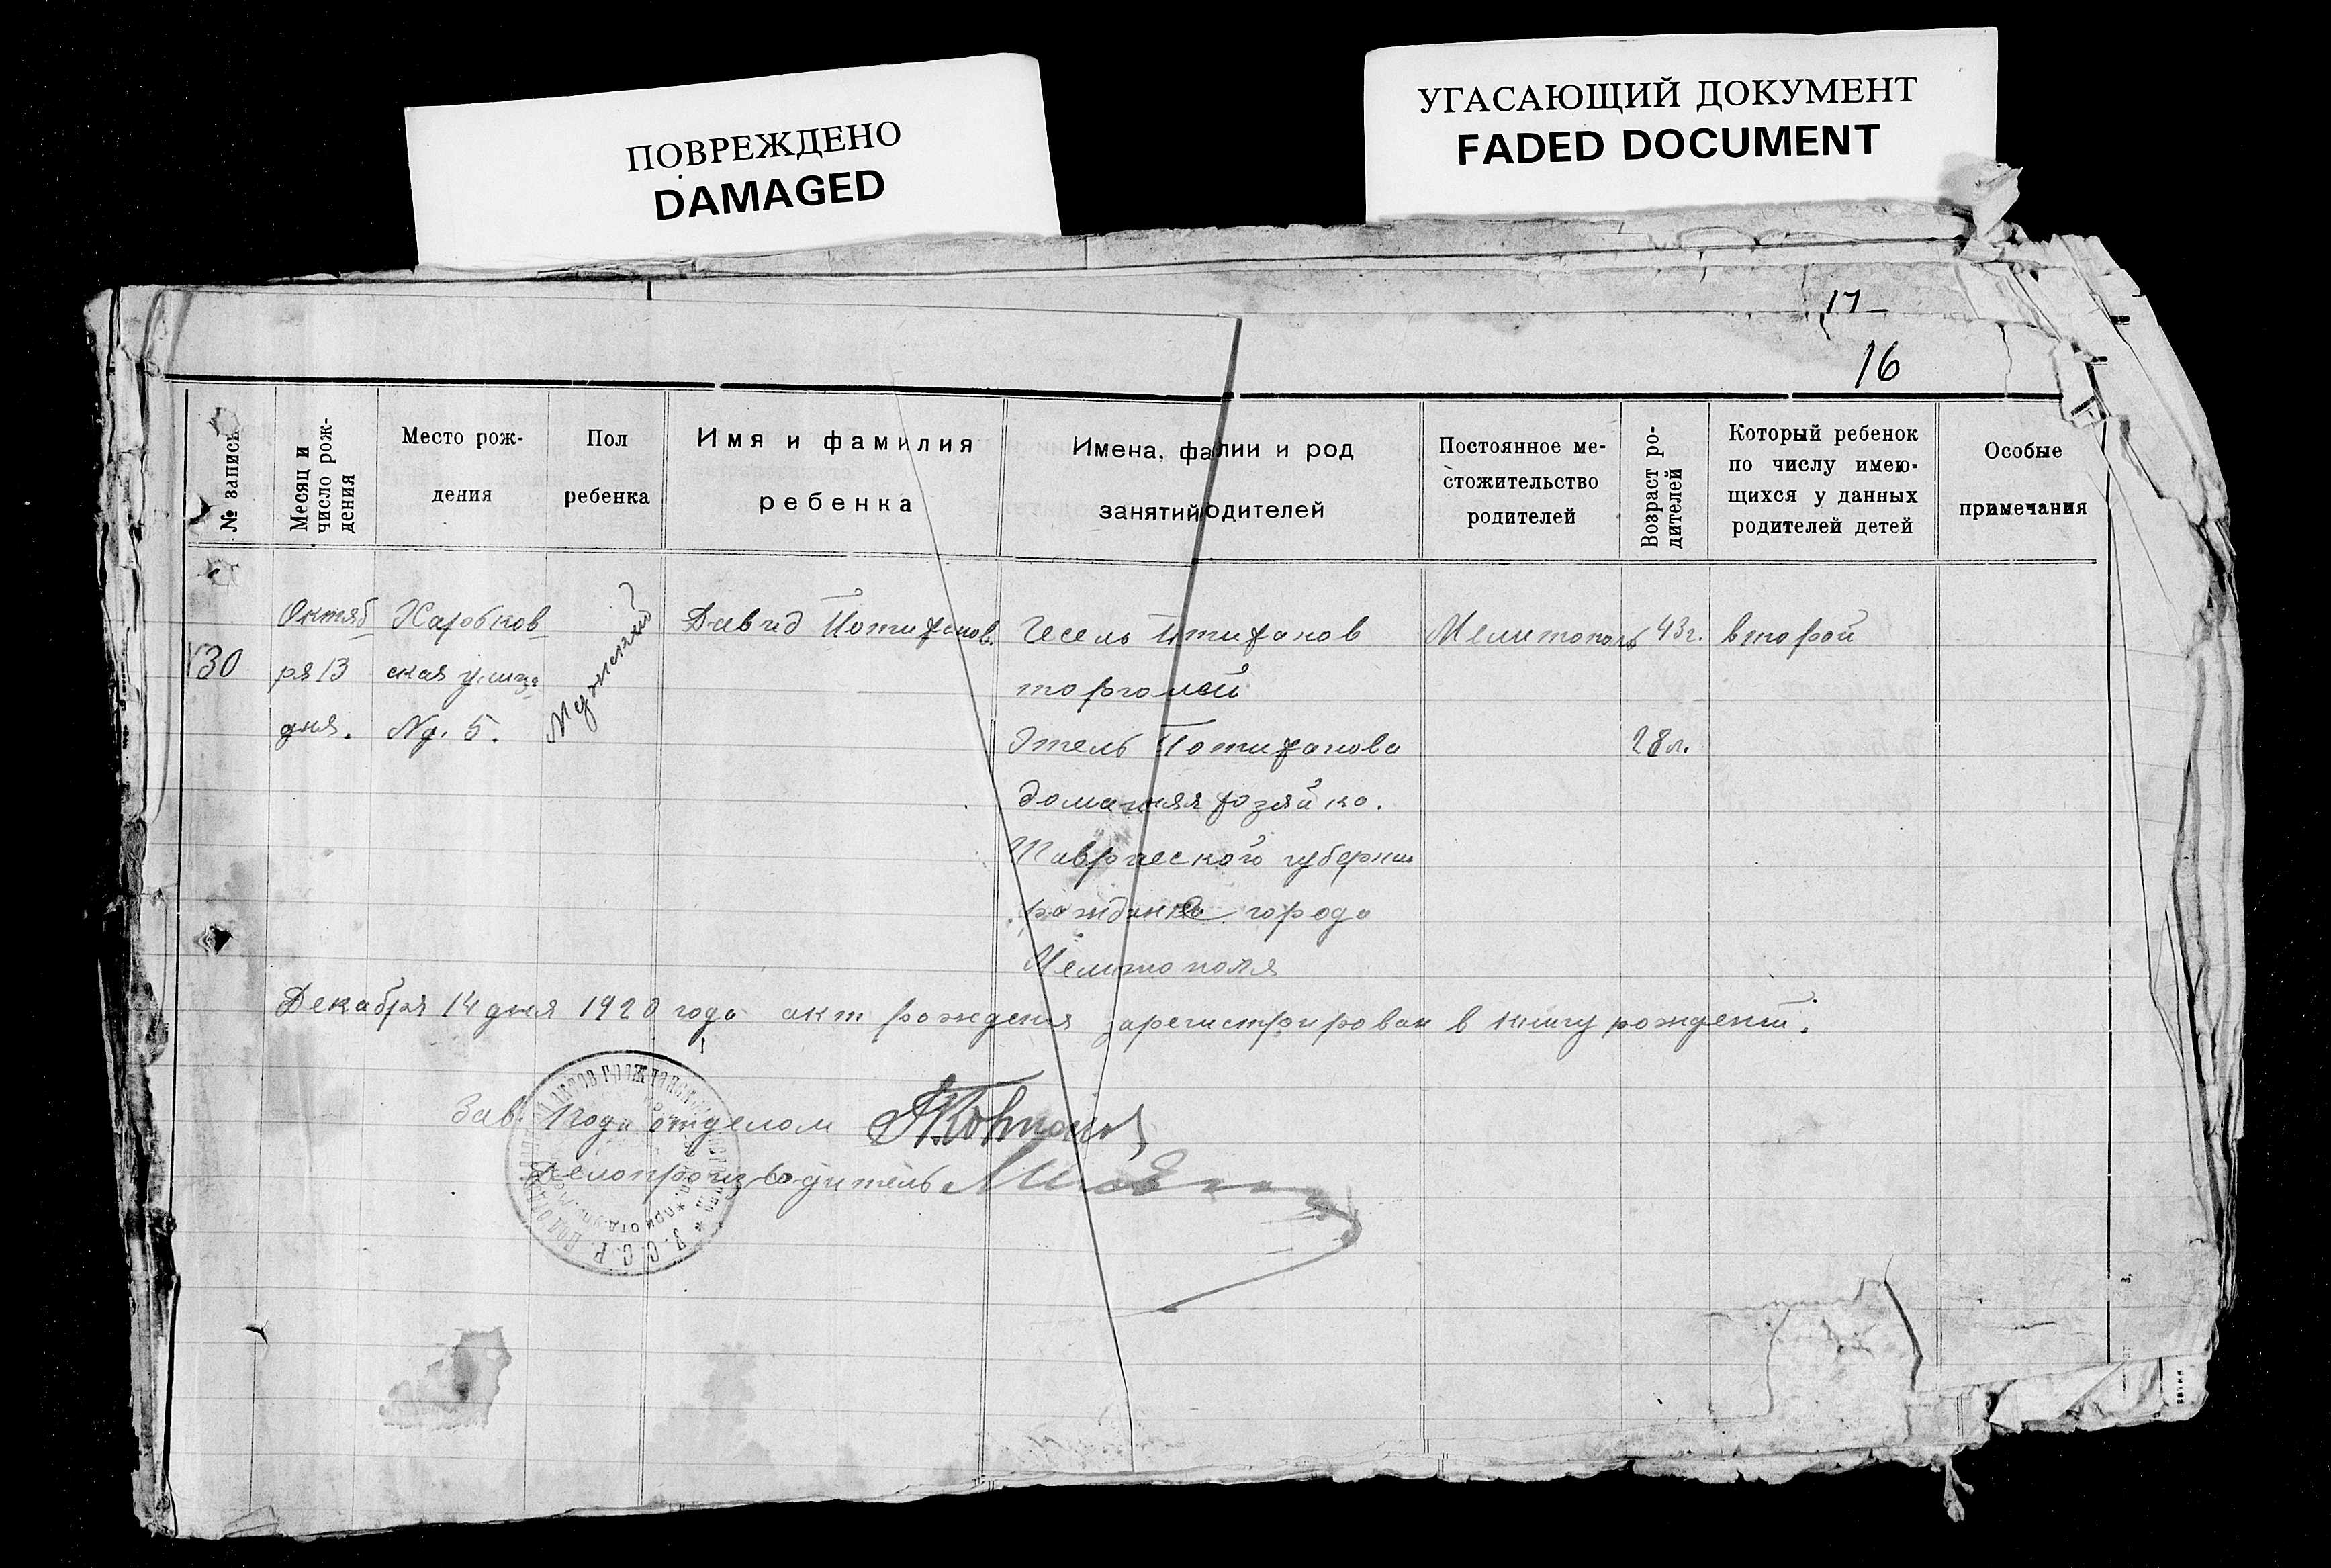 ПОВРЕЖДЕНО
DAMAGED
УГАСАЮЩИЙ ДОКУМЕНТ
FADED DOCUMENT
17
16
№ запись
Месяц и число рож-дения
Место рож-
дения
Пол
ребенка
Имя и фамилия
ребенка
Имена, фа лии и род
занятий одителей
Постоянное ме-
стожительство
родителей
Возраст ро-дителей
Который ребенок
по числу имею-
щихся у данных
родителей детей
Особые
примечания
30
Октяб
ря 13
дня.
Харьков
ская улица
№. 5.
Мужский
Давид
Гесель
торговой
Этель
домашняя хозяйка.
губернии
города
Мелитополя
Мелитополь
43г.
28л.
второй
Декабря 14 дня 1920 года акт рождения зарегистрирован в книгу рождений.
Зав. подъ отделом
Делопроизводитель
У.С.С.Р.